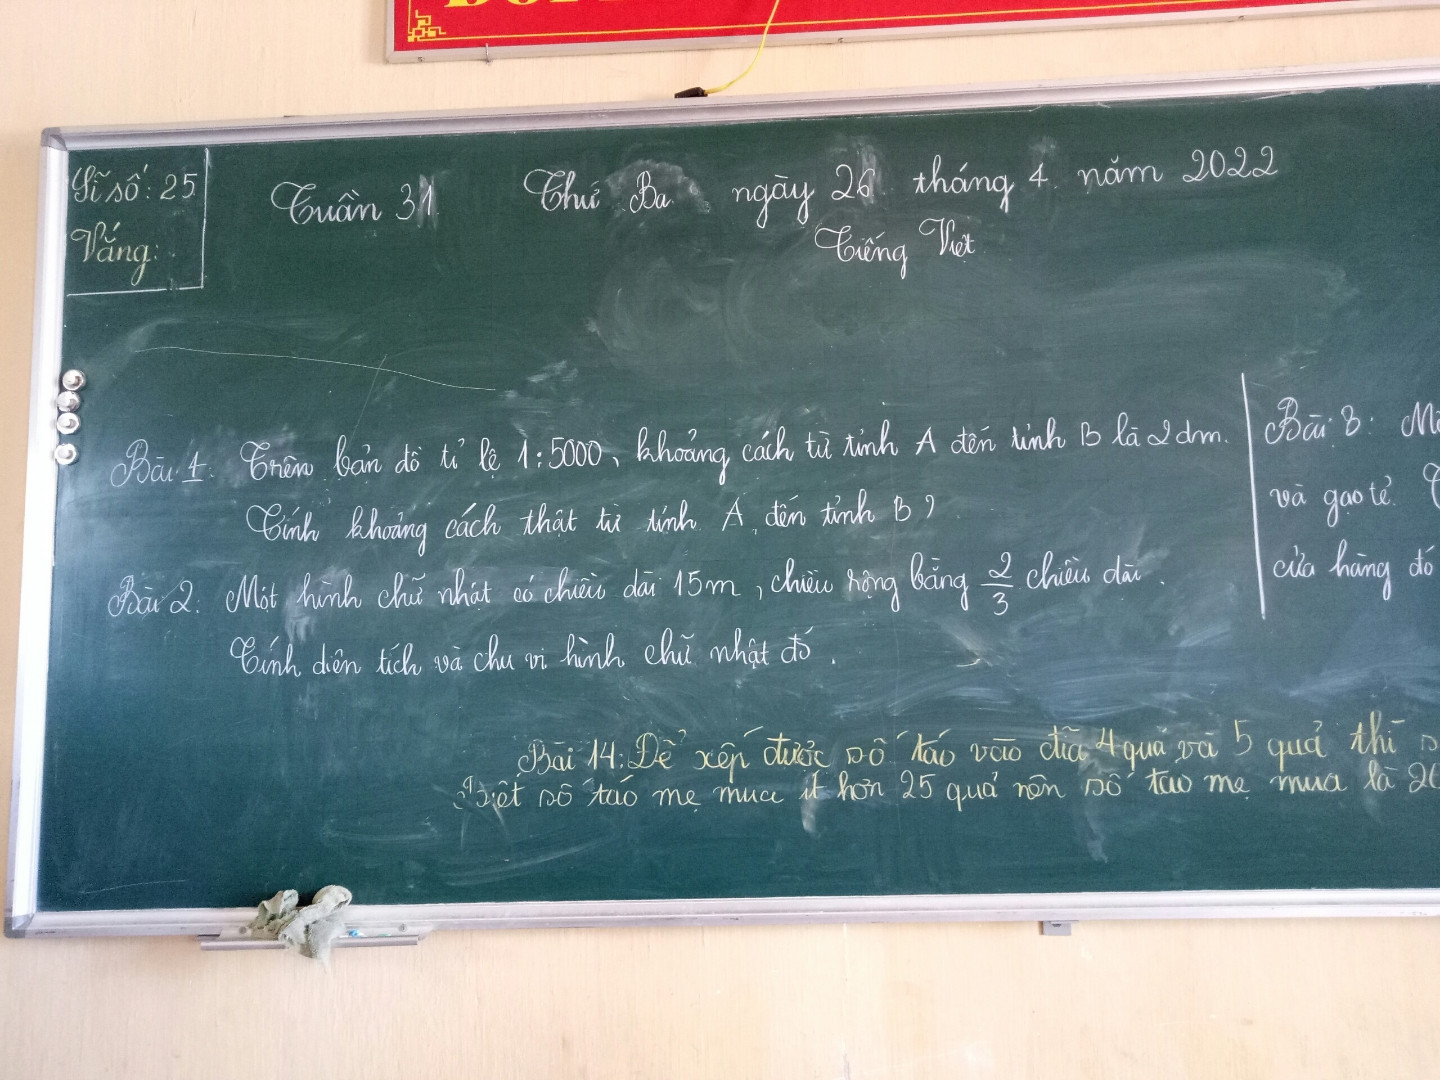 Sĩ số: 25
Vắng:
Tuần 31
Thứ Ba ngày 26 tháng 4 năm 2022
Tiếng Việt
Bài 1: Trên bản đồ tỉ lệ 1:5000, khoảng cách từ tỉnh A đến tỉnh B là 2dm.
Tính khoảng cách thật từ tỉnh A đến tỉnh B?
Bài 2: Một hình chữ nhật có chiều dài 15m, chiều rộng bằng 2/3 chiều dài.
Tính diện tích và chu vi hình chữ nhật đó.
Bài 3:
và gạo tẻ.
cửa hàng đó
Bài 14: Để xếp được số táo vào đĩa 4 quả và 5 quả thì
số táo mẹ mua ít hơn 25 quả nên số táo mẹ mua là